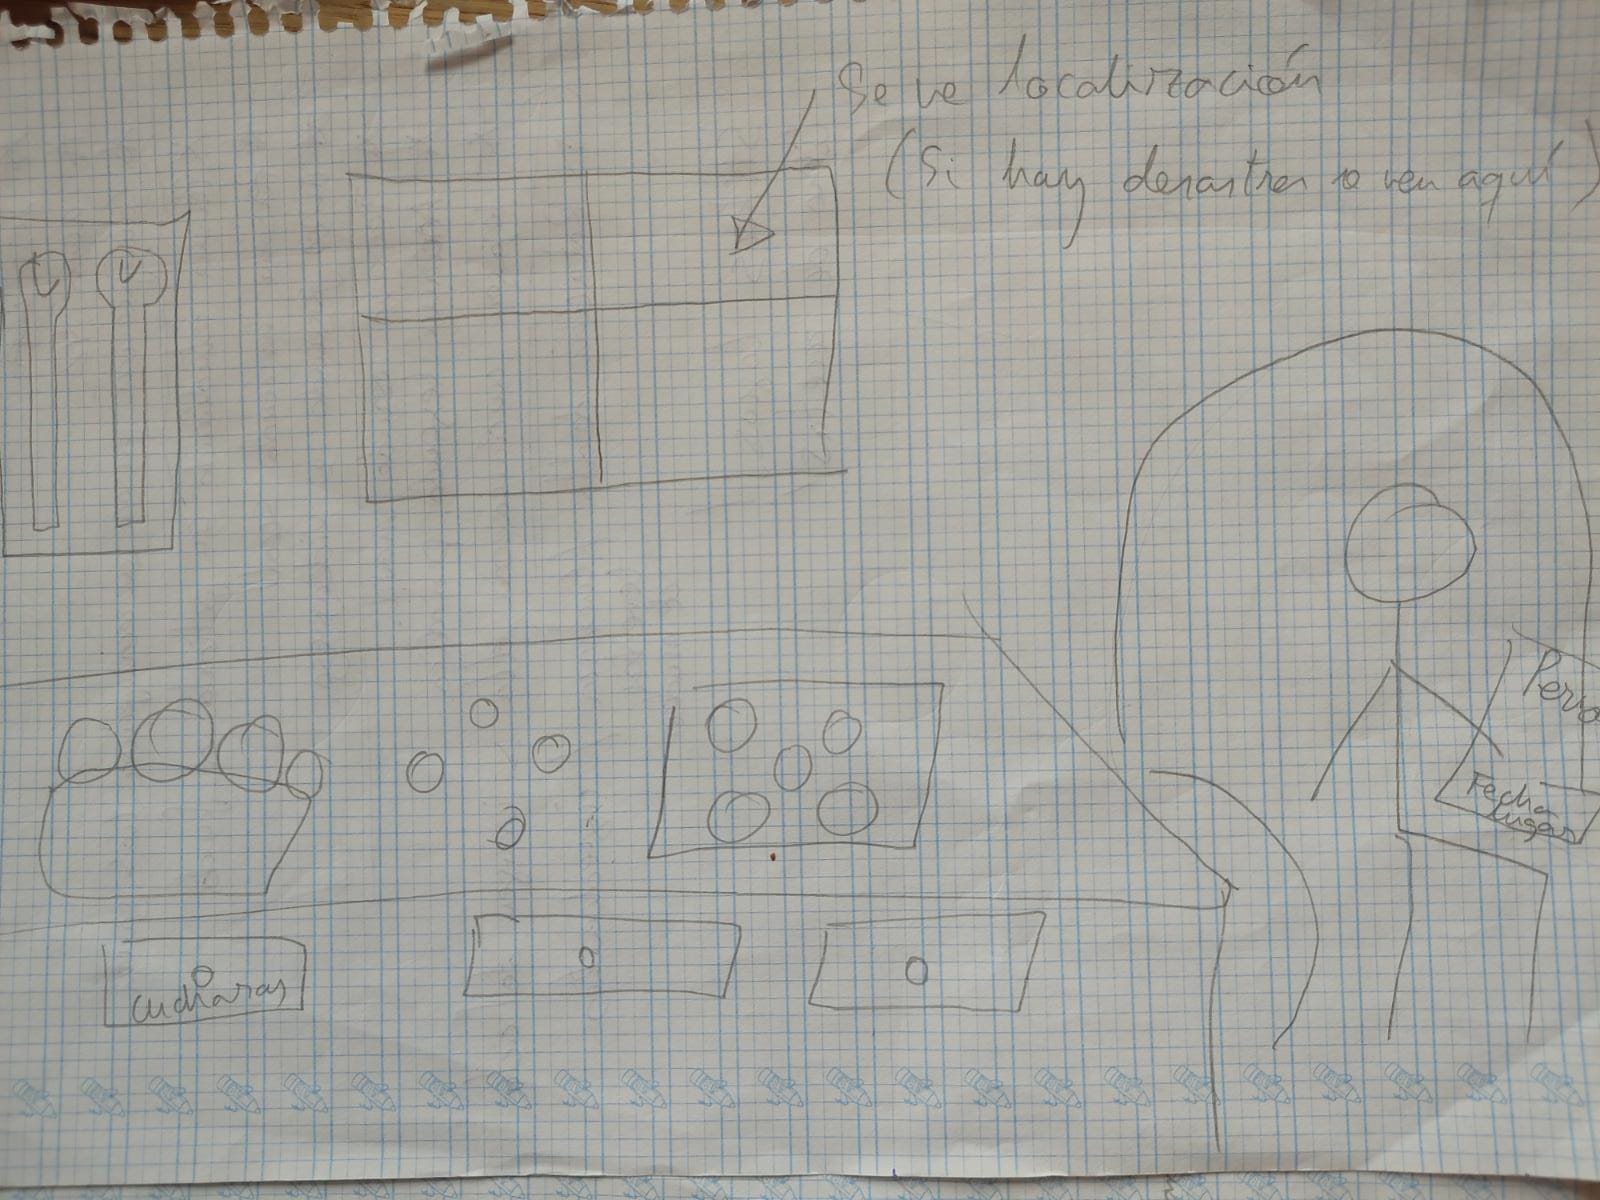 Se ve localización
(Si hay desastres se ven aquí)
Perio
Fecha
lugar
cucharas